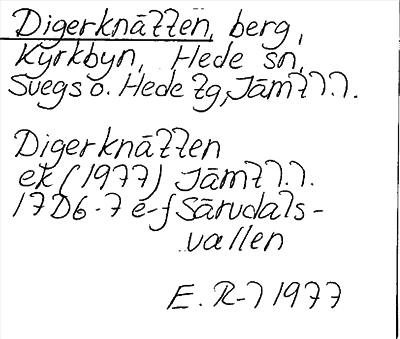 Digerknätten, berg,
Kyrkbyn, Hede sn,
Svegs o. Hede tg, Jämtl.l.
Digerknätten
ek (1977) Jämtl.l.
17D6-7e-f Särvdals-
vallen
E. R-l 1977